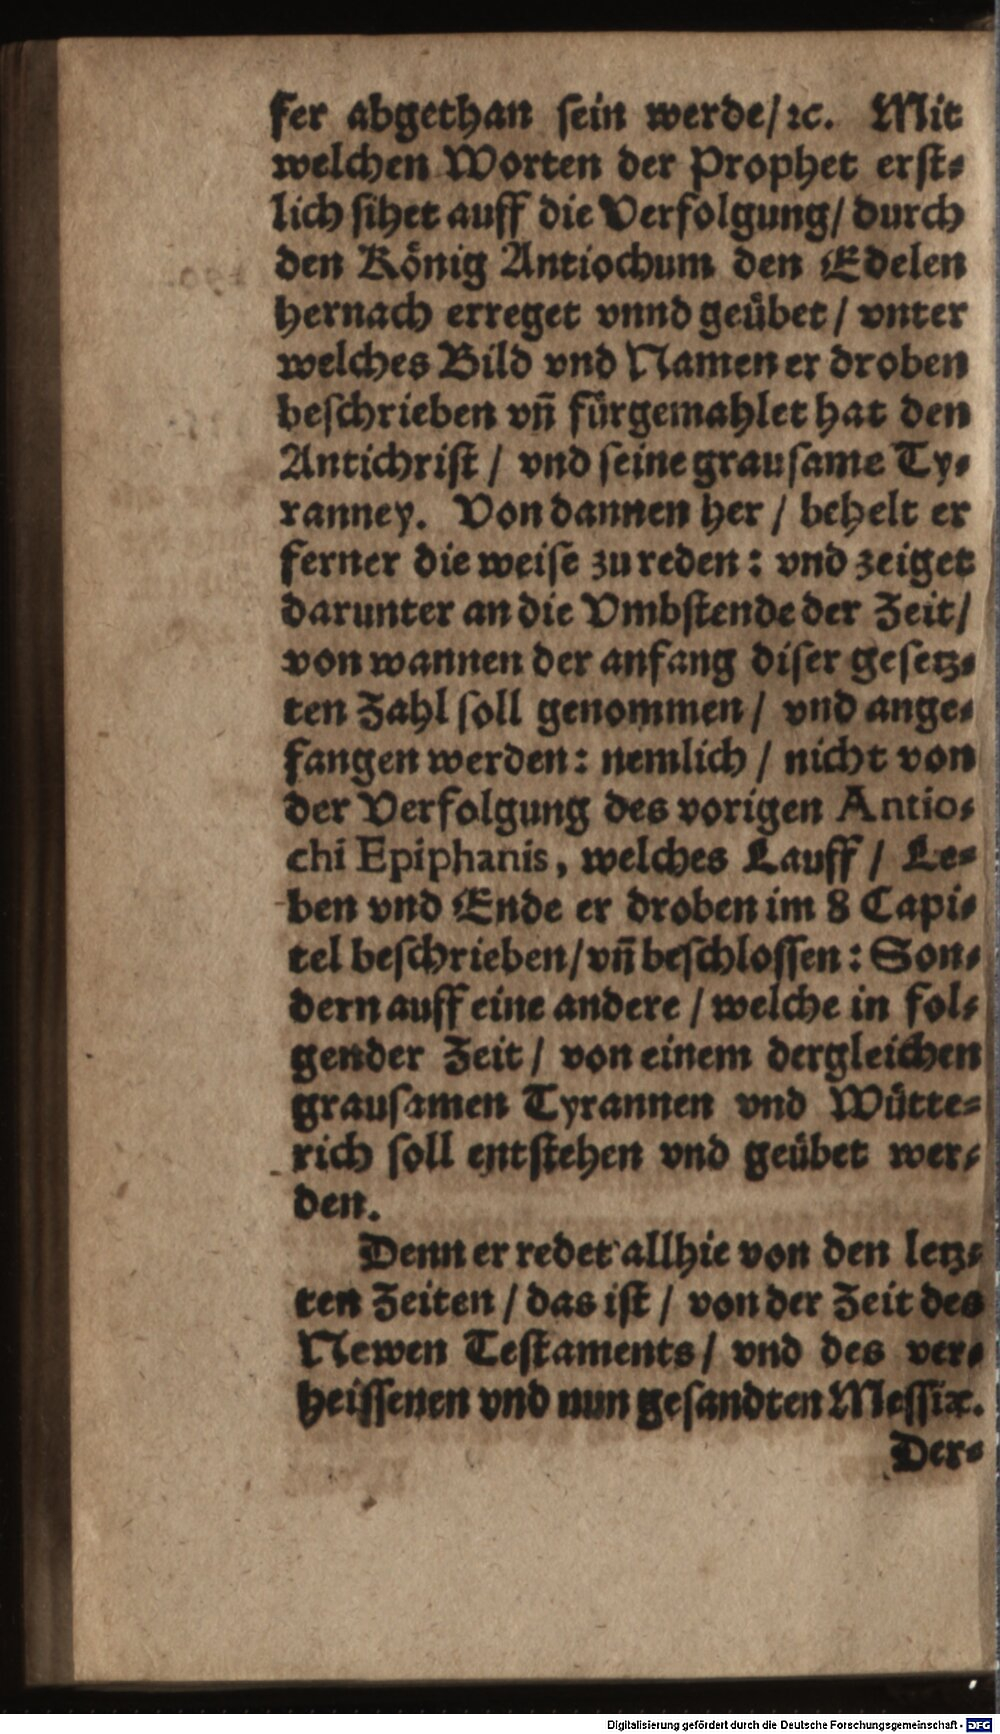 fer abgethan ſein werde/ ꝛc. Mit
welchen Worten der Prophet erſt⸗
lich ſihet auff die Verfolgung/ durch
den König Antiochum den Edelen
hernach erreget vnnd geübet / vnter
welches Bild vnd Namen er droben
beſchrieben vñ fürgemahlet hat den
Antichriſt / vnd ſeine grauſame Ty⸗
ranney. Von dannen her / behelt er
ferner die weiſe zu reden : vnd zeiget
darunter an die Vmbſtende der Zeit/
von wannen der anfang diſer geſetz⸗
ten Zahl ſoll genommen / vnd ange⸗
fangen werden : nemlich / nicht von
der Verfolgung des vorigen Antio⸗
chi Epiphanis, welches Lauff / Le⸗
ben vnd Ende er droben im 8 Capi⸗
tel beſchrieben/ vñ beſchloſſen : Son⸗
dern auff eine andere / welche in fol⸗
gender Zeit / von einem dergleichen
grauſamen Tyrannen vnd Wütte⸗
rich ſoll entſtehen vnd geübet wer⸗
den.
Denn er redet allhie von den letz⸗
ten Zeiten / das iſt / von der Zeit des
Newen Teſtaments / vnd des ver⸗
heiſſenen vnd nun geſandten Meſſiæ.
Der⸗
Digitalisierung gefördert durch die Deutsche Forschungsgemeinschaft - DFG